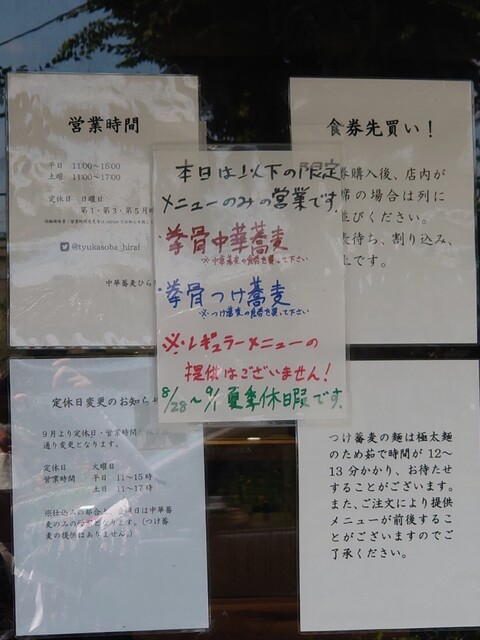 営業時間
平日 11:00〜16:00
土曜 11:00〜17:00
定休日 日曜日
第1・第3・第5月
@tyukasoba_hiraf
中華蕎麦ひら
食券先買い！
購入後、店内が
席の場合は列に
並びください。
待ち、割り込み、
止です。
本日は以下の限定
メニューのみの営業です。
・拳骨中華蕎麦
※中華蕎麦の食券を買って下さい
・拳骨つけ蕎麦
※つけ蕎麦の食券を買って下さい
※・レギュラーメニューの
提供はございません！
8/28〜9/1 夏季休日暇です。
定休日変更のお知ら
9月より定休日・営業時間
通り変更となります。
定休日 火曜日
営業時間 平日 11〜15時
土日 11〜17時
※仕込みの都合上、
曜日は中華蕎
麦のみの
となります。(つけ蕎
麦の提供はありません。)
つけ蕎麦の麺は極太麺
のため茹で時間が12〜
13分かかり、お待たせ
することがございます。
また、ご注文により提供
メニューが前後するこ
とがございますのでご
了承ください。